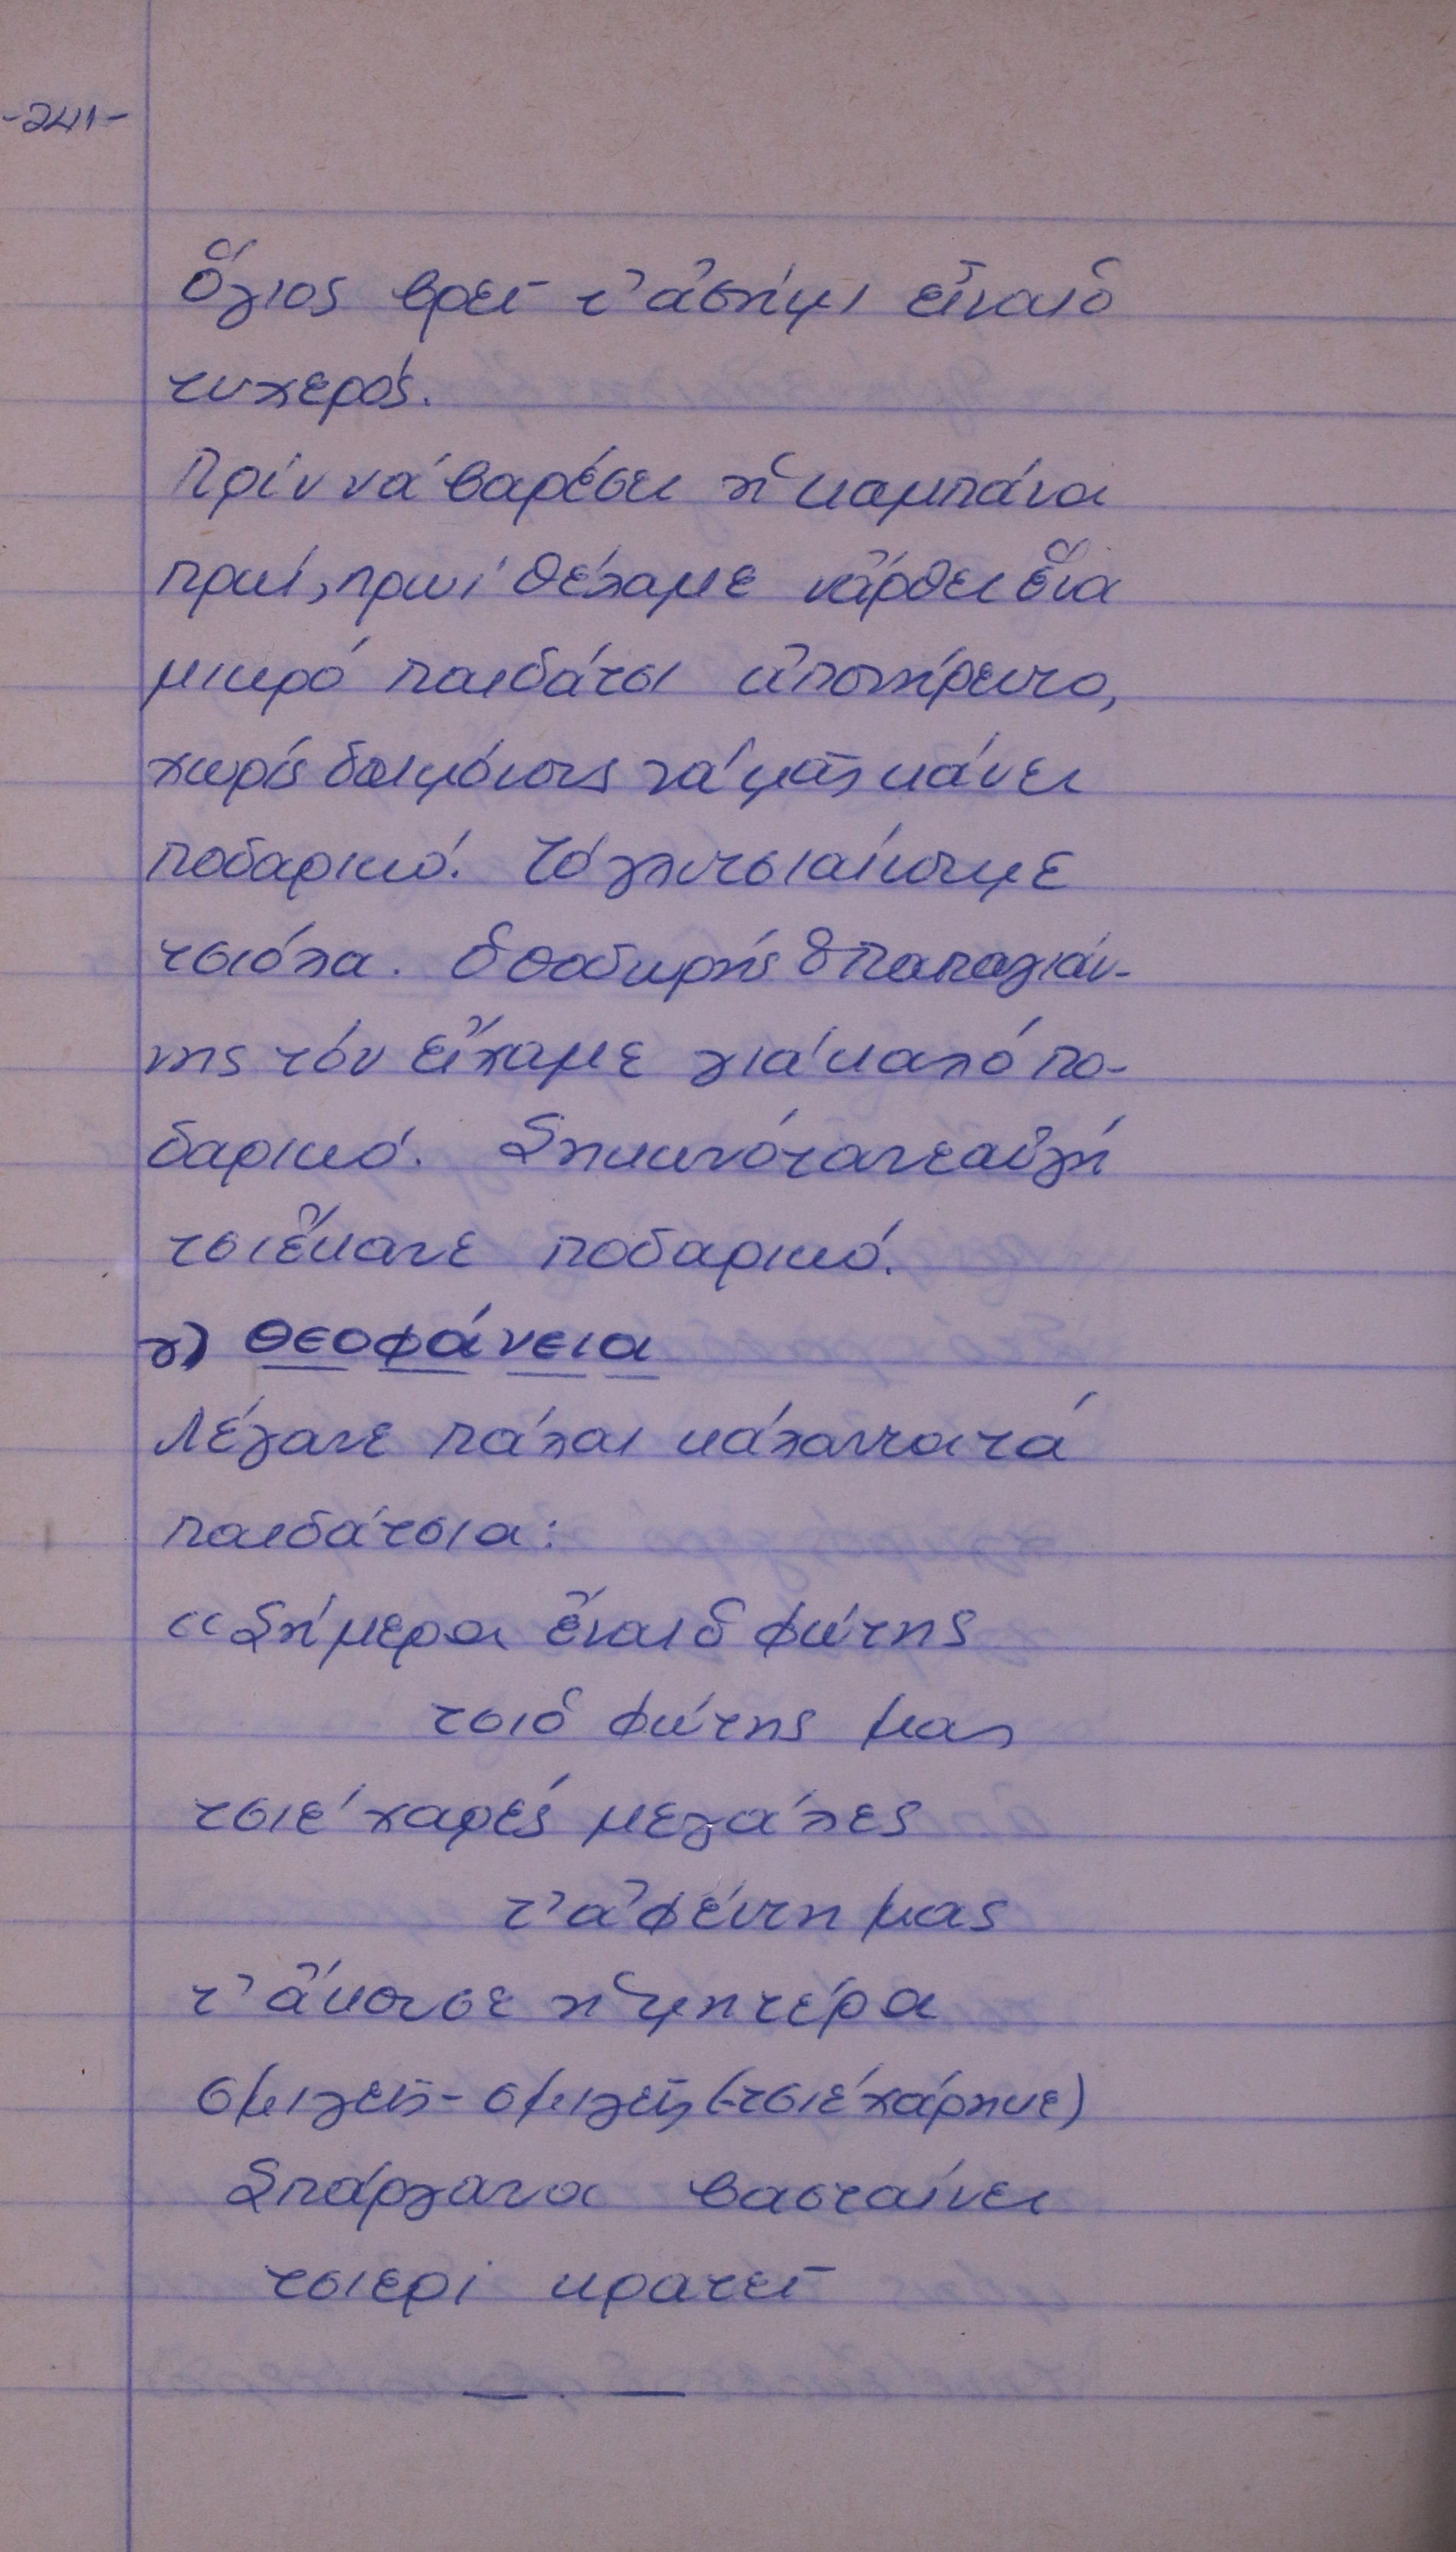 -241-
Ὅγιος βρεῖ τ' ἀσήμι εἶναι ὁ
τυχερός.
Πρίν νά βαρέσει ἡ καμπάνα
πρωί, πρωί θέλαμε νἄρθει ἕνα
μικρό παιδάτσι ἀπονήρευτο,
χωρίς δαιμόνους νά μᾶς κάνει
ποδαρικό. Τό γλυτσιαίνουμε
τσιόλα. Ὁ Θοδωρής ὁ Παπαγιάν-
νης τόν εἴχαμε γιά καλό πο-
δαρικό. Σηκωνότανε αὐγή
τσι ἔκανε ποδαρικό.
γ) Θεοφάνεια
Λέγανε πάλαι κάλαντα τά
παιδάτσια:
«Σήμερα ἔναι ὁ φώτης
τσι ὁ φώτης μας
τσιέ χαρές μεγάλες
τ' ἀφέντη μας
τ' ἄκουσε ἡ μητέρα
σμιγεῖς - σμιγεῖς (τσιέ χάρηνε)
Σπάργανα βασταίνει
τσιερί κρατεῖ